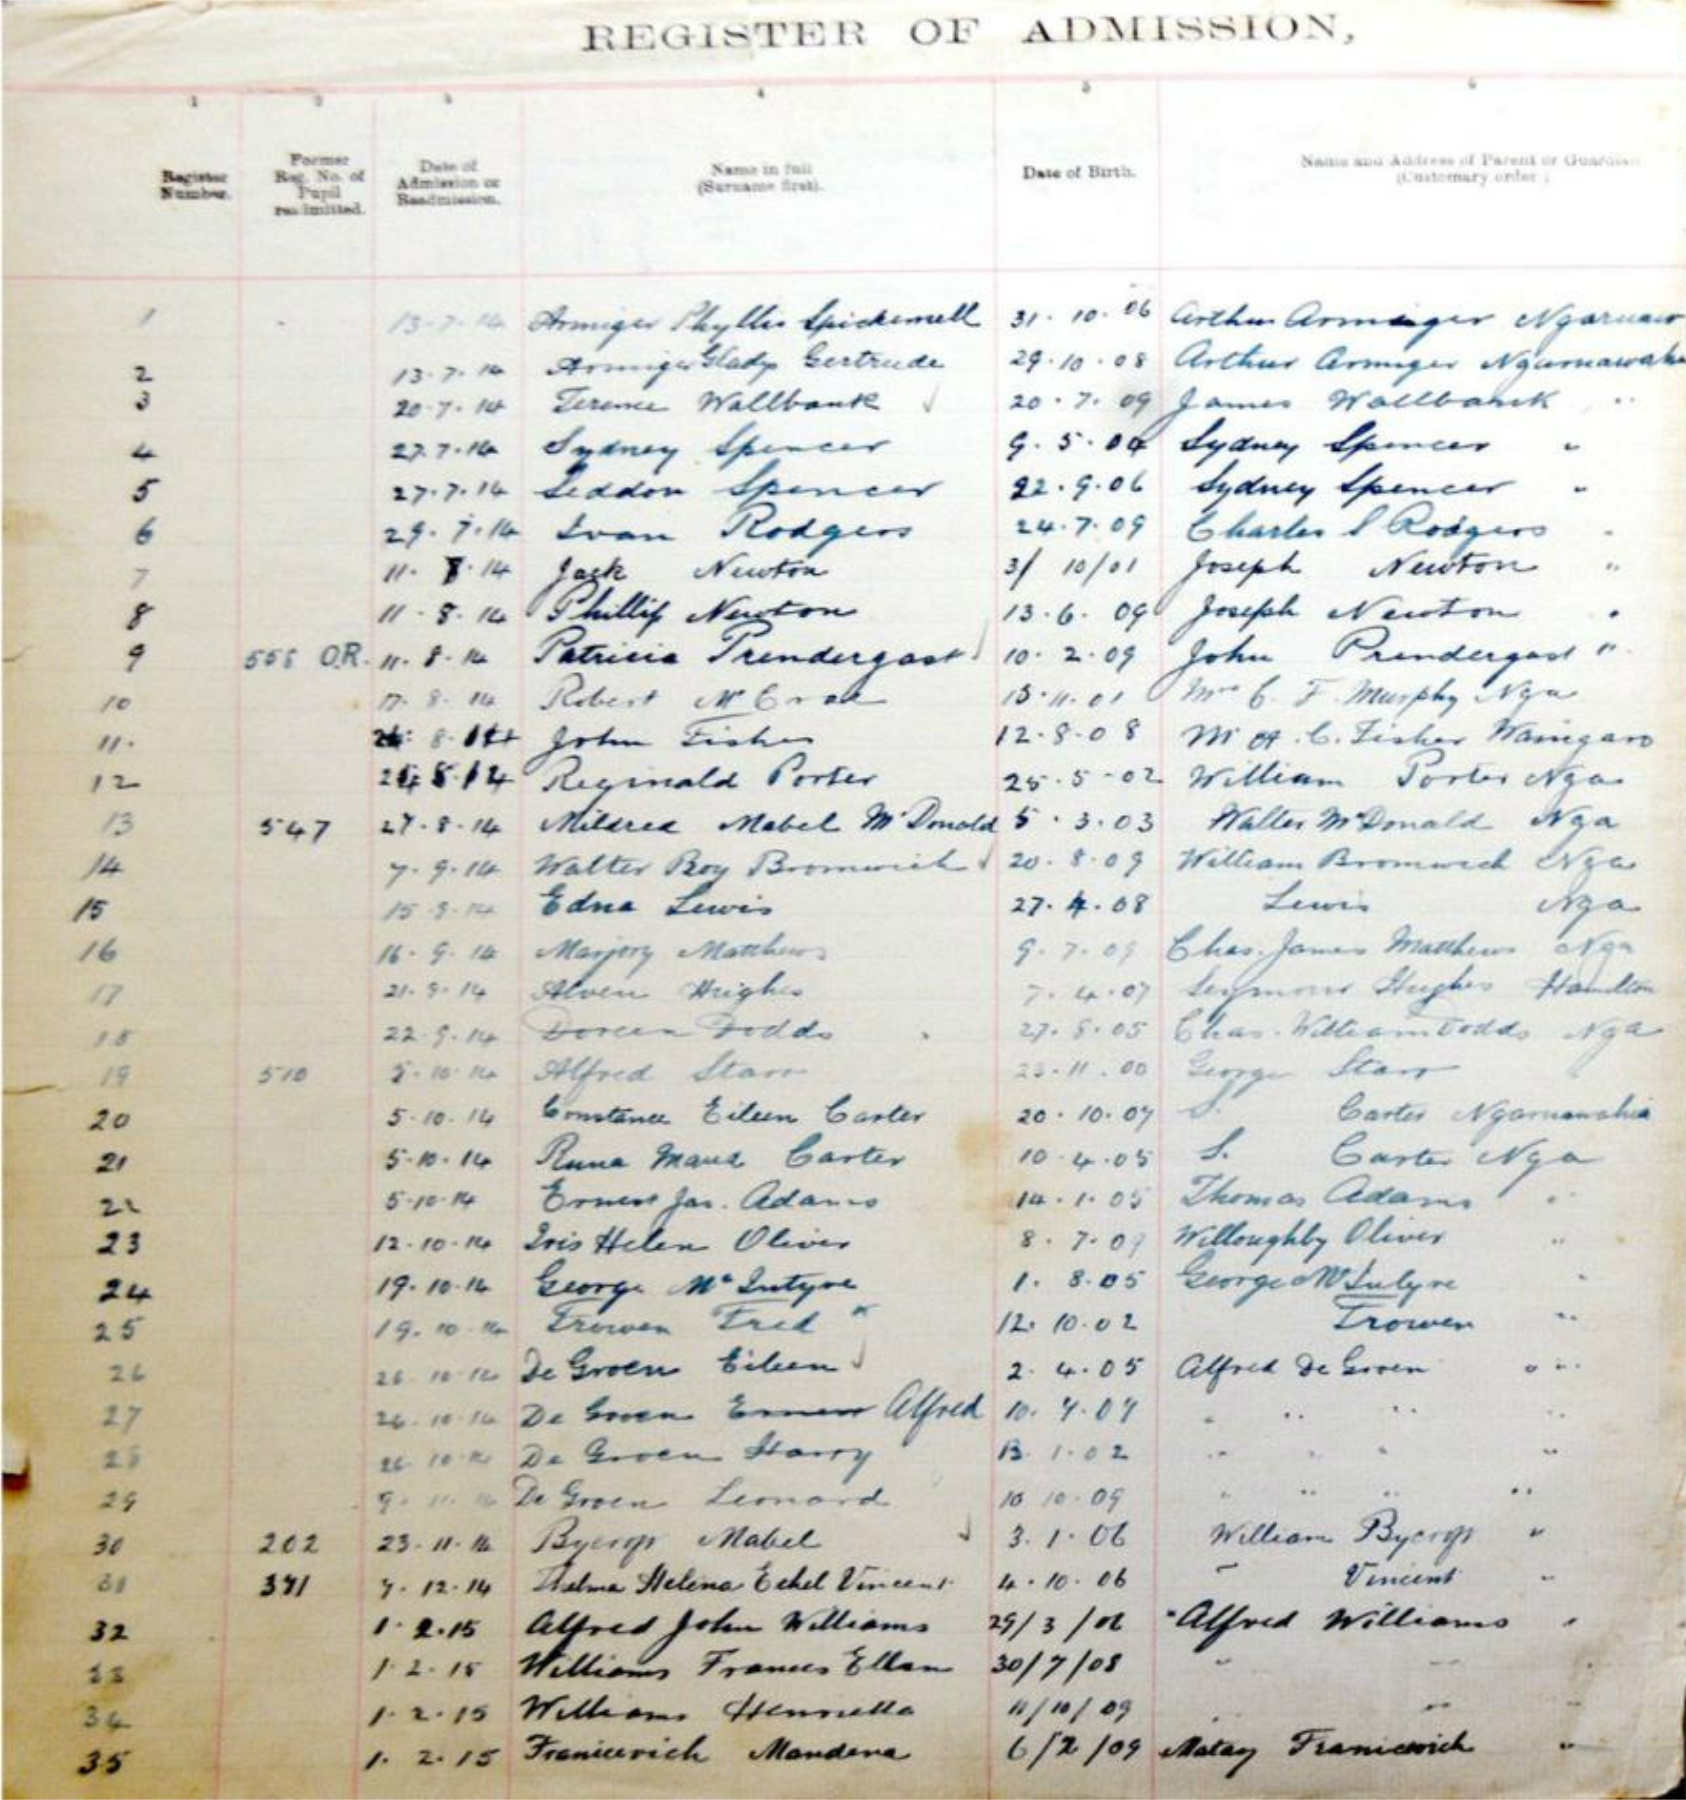 REGISTER OF ADMISSION,
1 2 3 4 5 6
Register Number. Former Reg. No. of Pupil readmitted. Date of Admission or Readmission. Name in full (Surname first). Date of Birth. Name and Address of Parent or Guardian (Customary order.)
1 13-7-14 Armiger Phyllis Spickernell 31. 10. 06 Arthur Armiger Ngaruaw
2 13-7-14 Armiger Gladys Gertrude 29.10.08 Arthur Armiger Ngaruawahi
3 20-7-14 Terence Wallbank 20.7.09 James Wallbank "
4 27.7.14 Sydney Spencer 9.5.04 Sydney Spencer "
5 27.7.14 Seddon Spencer 22.9.06 Sydney Spencer "
6 29.7.14 Ivan Rodgers 24.7.09 Charles S Rodgers "
7 11.8.14 Jack Newton 3/10/01 Joseph Newton "
8 11-8.14 Phillip Newton 13.6.09 Joseph Newton "
9 558 O.R. 11.8.14 Patricia Prendergast 10.2.09 John Prendergast "
10 17.8.14 Robert McCrae 13.11.01 Mrs C. F. Murphy Nga
11. 8.14 John Fisher 12.8.08 Fisher Waingaro
12 24.8.14 Reginald Porter 25.5-02 William Porter Nga
13 547 27.8.14 Mildred Mabel McDonald 5.3.03 Walter McDonald Nga
14 7.9.14 Walter Roy Bromwich 20.8.09 William Bromwich Nga
15 15.9.14 Edna Lewis 27.4.08 Lewis Nga
16 16.9.14 Marjory Matthews 9.7.09 Chas. James Matthews Nga
17 21.9.14 Alven Hughes 7.4.07 Seymour Hughes Hamilton
18 22.9.14 Doreen Dodds 27.8.05 Chas. William Dodds Nga
19 510 5.10.14 Alfred Starr 23.11.00 George Starr
20 5.10.14 Constance Eileen Carter 20.10.07 S. Carter Ngaruawahia
21 5.10.14 Runa Maud Carter 10.4.05 S. Carter Nga
22 5.10.14 Ernest Jas. Adams 14.1.05 Thomas Adams "
23 12.10.14 Iris Helen Oliver 8.7.09 Willoughby Oliver "
24 19.10.14 George McIntyre 1.8.05 George McIntyre "
25 19.10.14 Trowen Fred 12.10.02 Trowen "
26 26.10.14 De Groen Eileen 2.4.05 Alfred De Groen "
27 26.10.14 De Groen Ernest Alfred 10.7.07 " " " "
28 26.10.14 De Groen Harry 13.1.02 " " " "
29 9.11.14 De Groen Leonard 10 10.09 " " " "
30 202 23.11.14 Bycroft Mabel 3.1.06 William Bycroft "
31 371 7.12.14 Thelma Helena Ethel Vincent 4.10.06 Vincent "
32 1.2.15 Alfred John Williams 29/3/06 Alfred Williams "
33 1.2.15 Williams Frances Ellen 30/7/08 " "
34 1.2.15 Williams Henrietta 11/10/09 " "
35 1.2.15 Franicevich Mandena 6/2/09 Matay Franicevich "